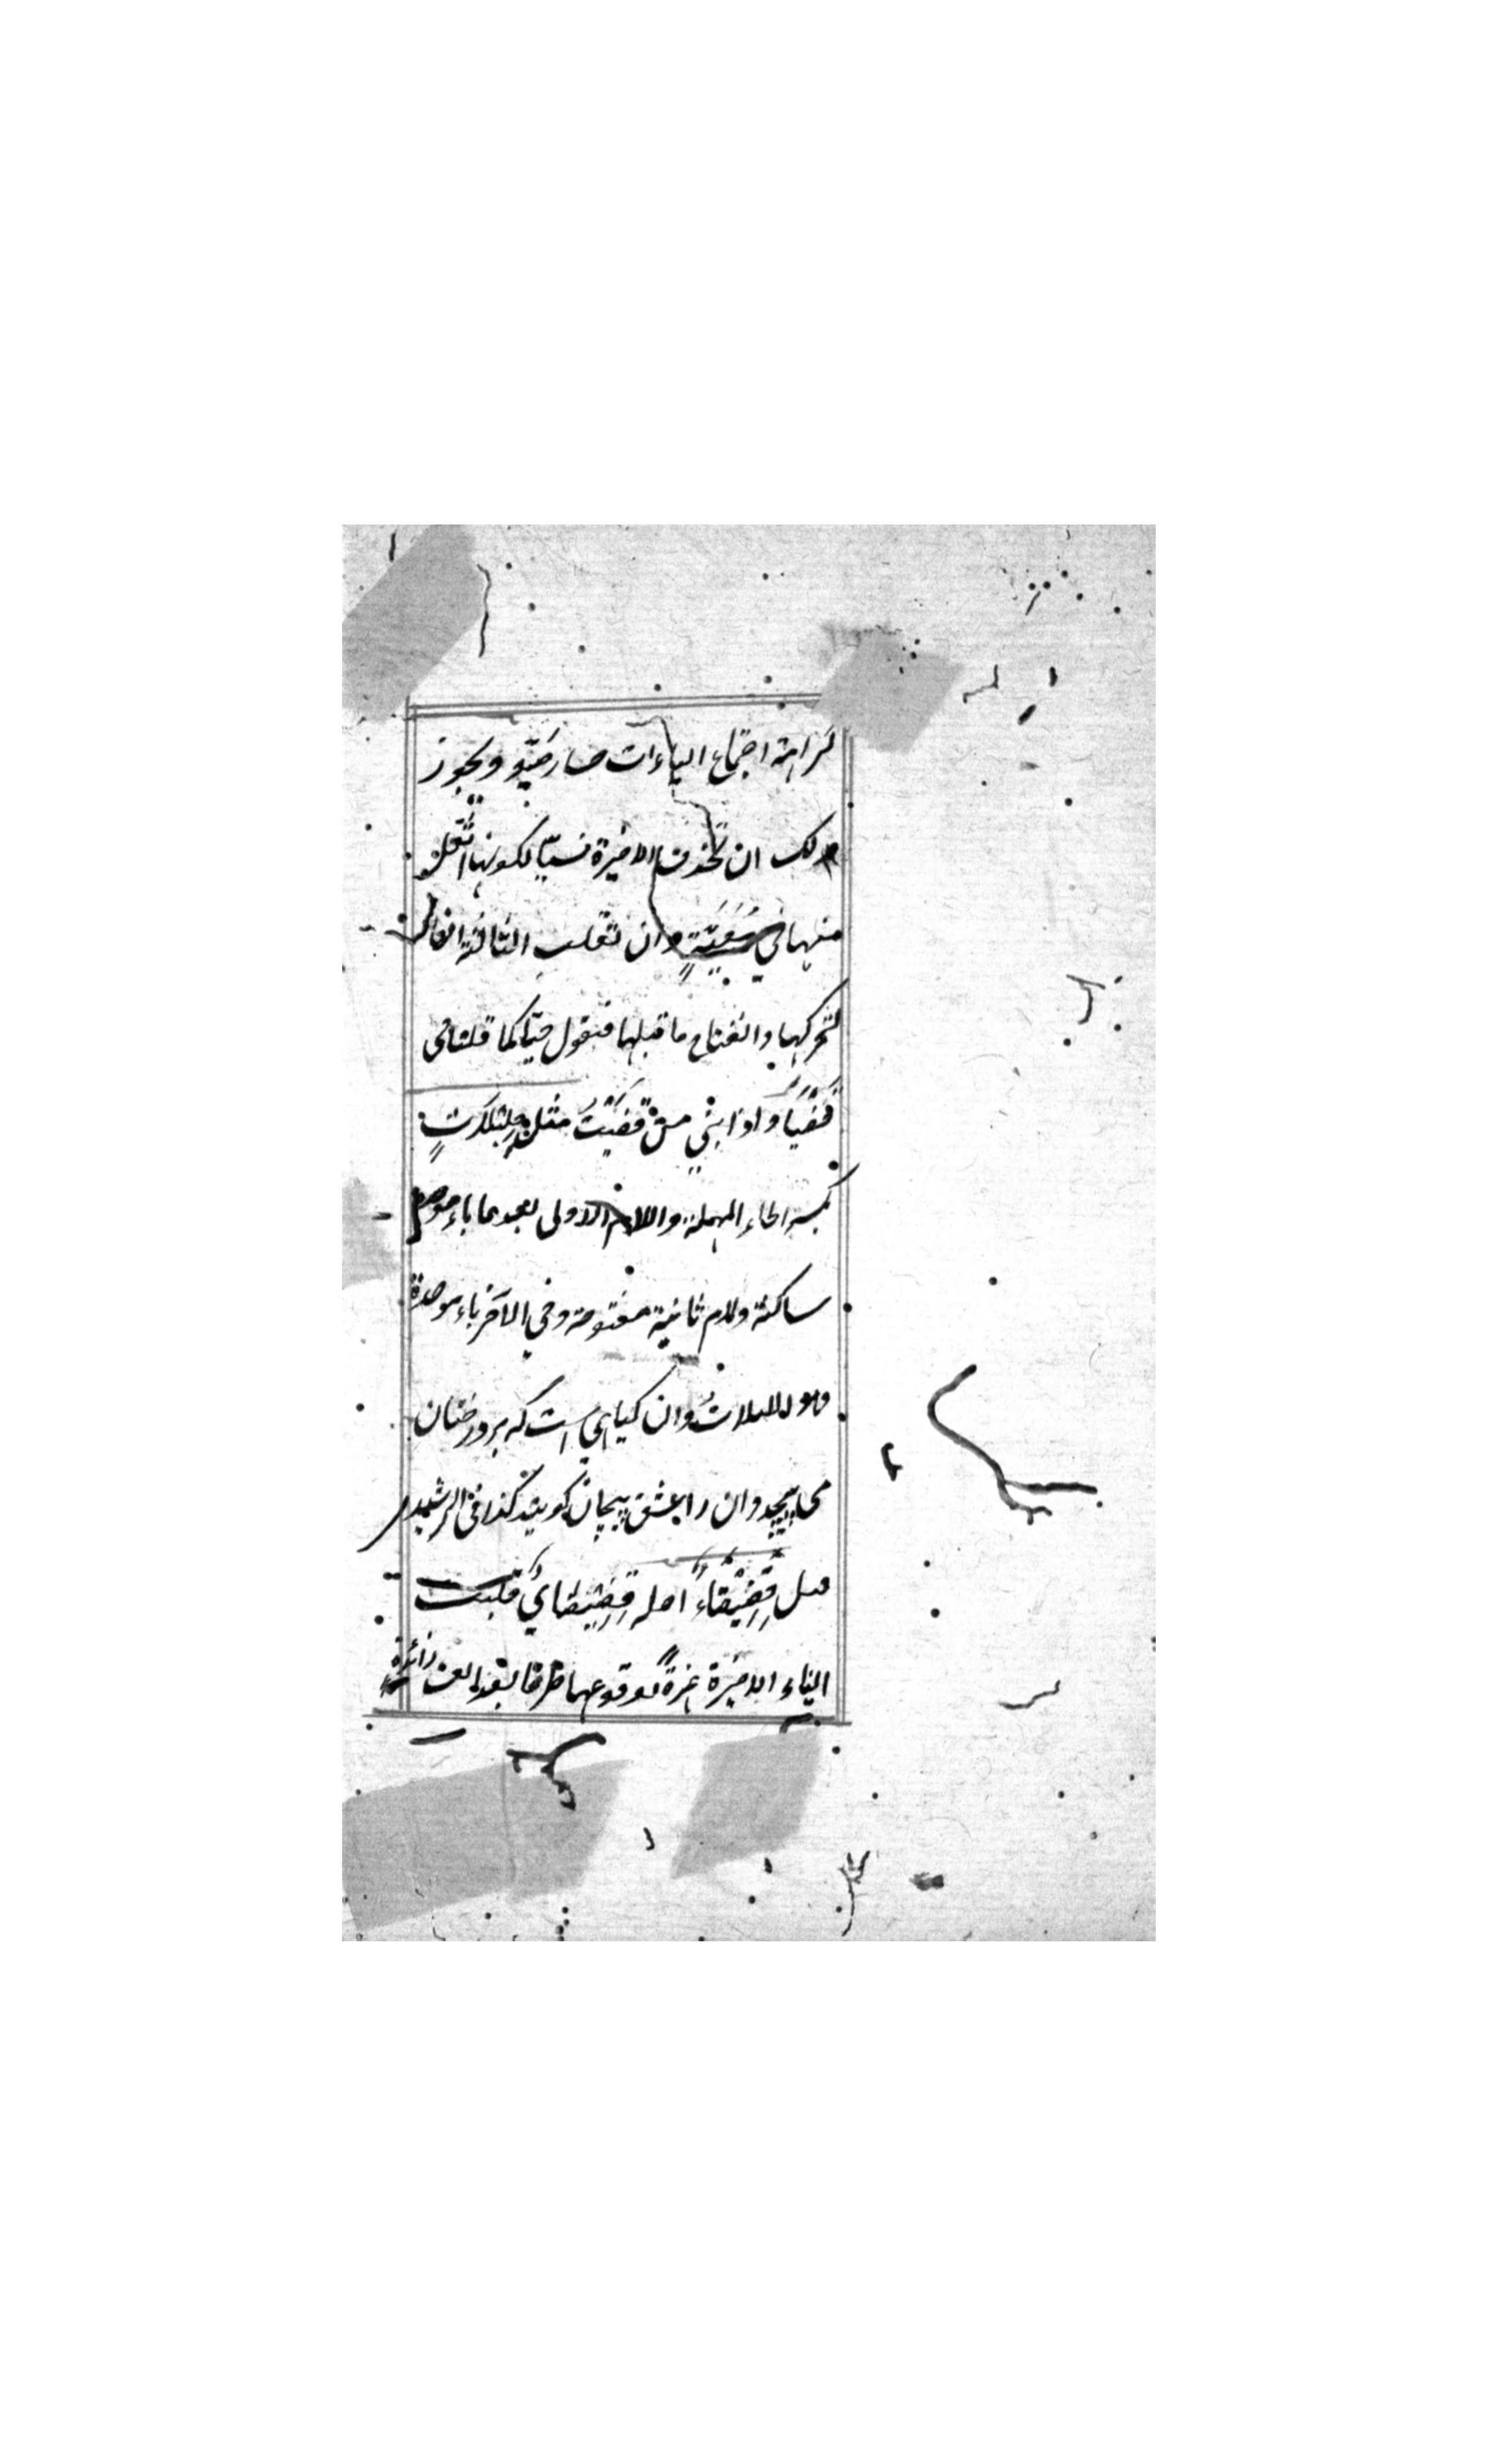 كراهة اجتماع الياءات صار حيّو ويجوز
لك ان تحذف الاخيرة نسيّا لكونها اثقل
منها في مُعَيَّةٍ وان تقلب الثالثة الفا
لتحركها وانفتاح ما قبلها فتقول حيّا كما قلنا في
قَضَيًا واذا بني من قَضَيْتُ مثل حِلِبْلَابٍ
بكسر الحاء المهملة واللام الاولى بعدها باء موحدة
ساكنة ولام ثانية مفتوحة وفي الآخر باء موحدة
وهو اللبلاب وان كياهي است كه بر درختان
مى پيچد وان را عشق پيچان كويند كذا في الرشيدى
قيل قِضِيْضَاءً اصله قِضِيْضَايٌ قلبت
الياء الاخيرة همزةً لوقوعها طرفا بعد الف زائدة